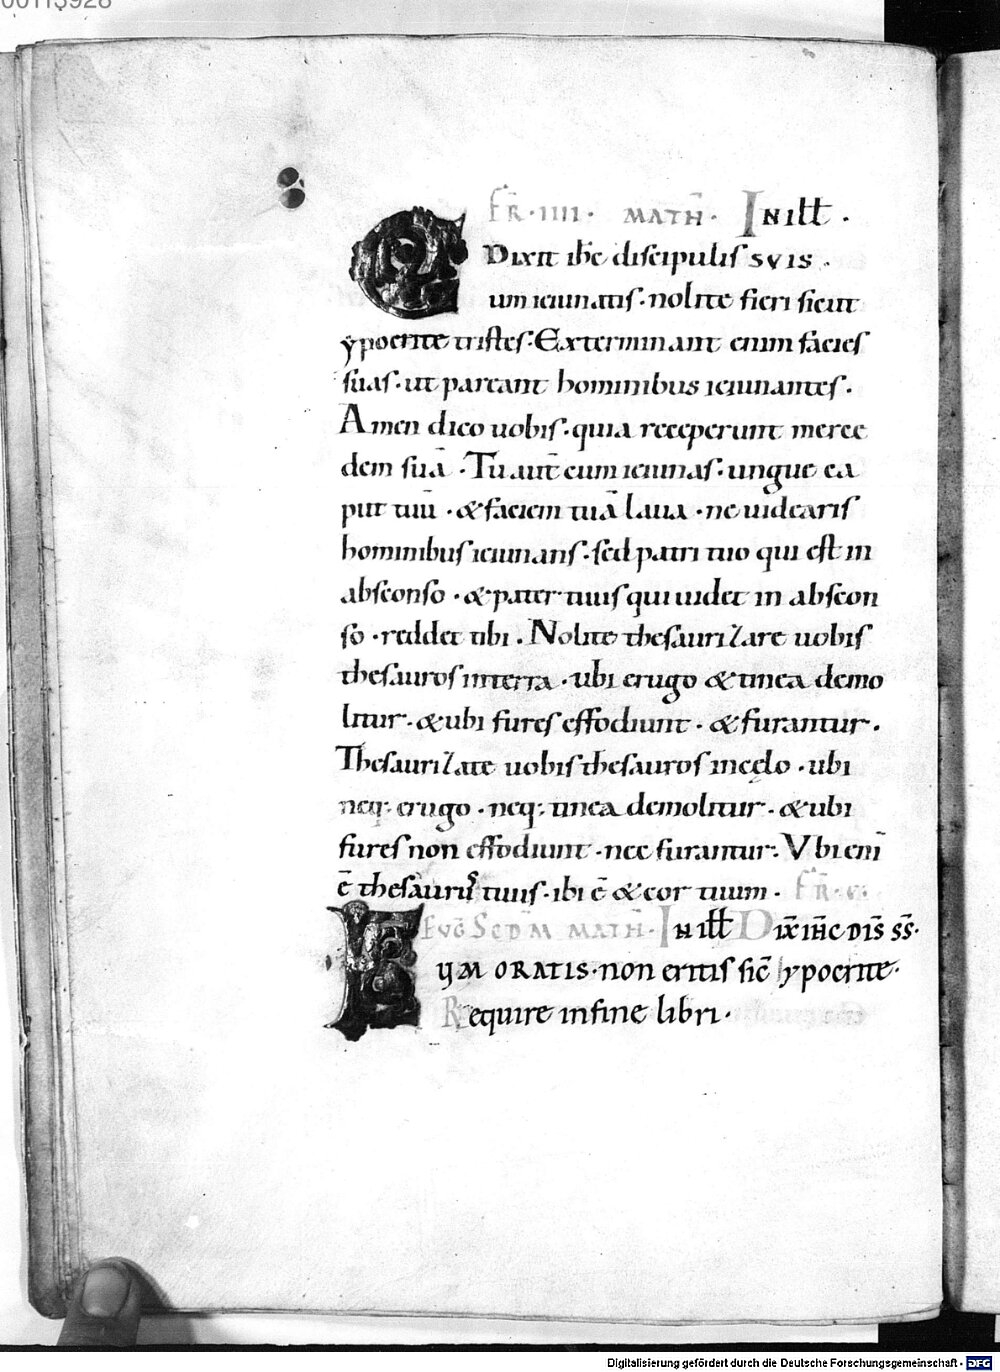 00113928
FR̄ · IIII · MATH̄ · IN ILL̄ ·
DIXIT ih̄c discipulis SVIS ·
Cum ieiunatis · nolite fieri sicut
ypocrite tristes · Exterminant enim facies
suas · ut pareant hominibus ieiunantes ·
Amen dico uobis · quia receperunt merce
dem suā · Tu aut̄ cum ieiunas · ungue ca
put tuū · & faciem tuā laua · ne uidearis
hominibus ieiunans · sed patri tuo qui est in
absconso · & pater tuus qui uidet in abscon
so · reddet tibi · Nolite thesaurizare uobis
thesauros in terra · ubi erugo & tinea demo
litur · & ubi fures effodiunt · & furantur ·
Thesaurizate uobis thesauros in cęlo · ubi
neq; erugo · neq; tinea demolitur · & ubi
fures non effodiunt · nec furantur · Vbi eni̅
ē thesaurus tuus · ibi ē & cor tuum · FR̄ · V ·
EVḠ SECD̄M MATH̄ · IN ILL̄ DIX̄ IH̄C DIS̄ SS̄ ·
CVM ORATIS · non eritis sic̄ ypocrite ·
Require in fine libri ·
Digitalisierung gefördert durch die Deutsche Forschungsgemeinschaft - DFG